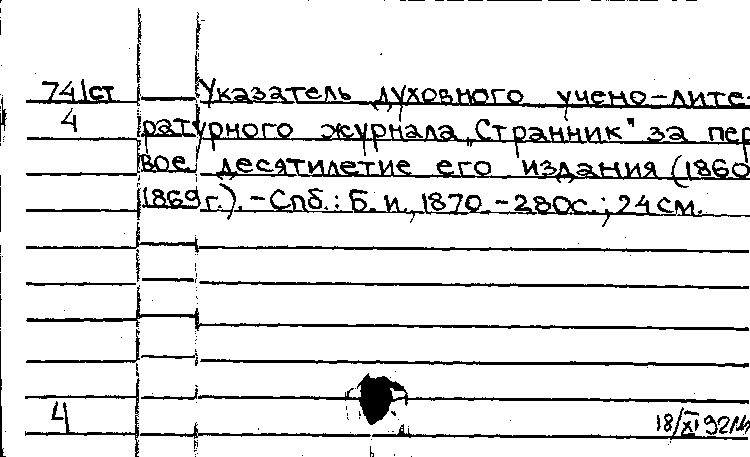 74/ст Указатель духовного учено-лите-
4 ратурного журнала „Странник" за пер
вое десятилетие его издания (1860
1869г.). - Спб.: Б. и., 1870. - 280с.; 24см.
4 18/XI 92